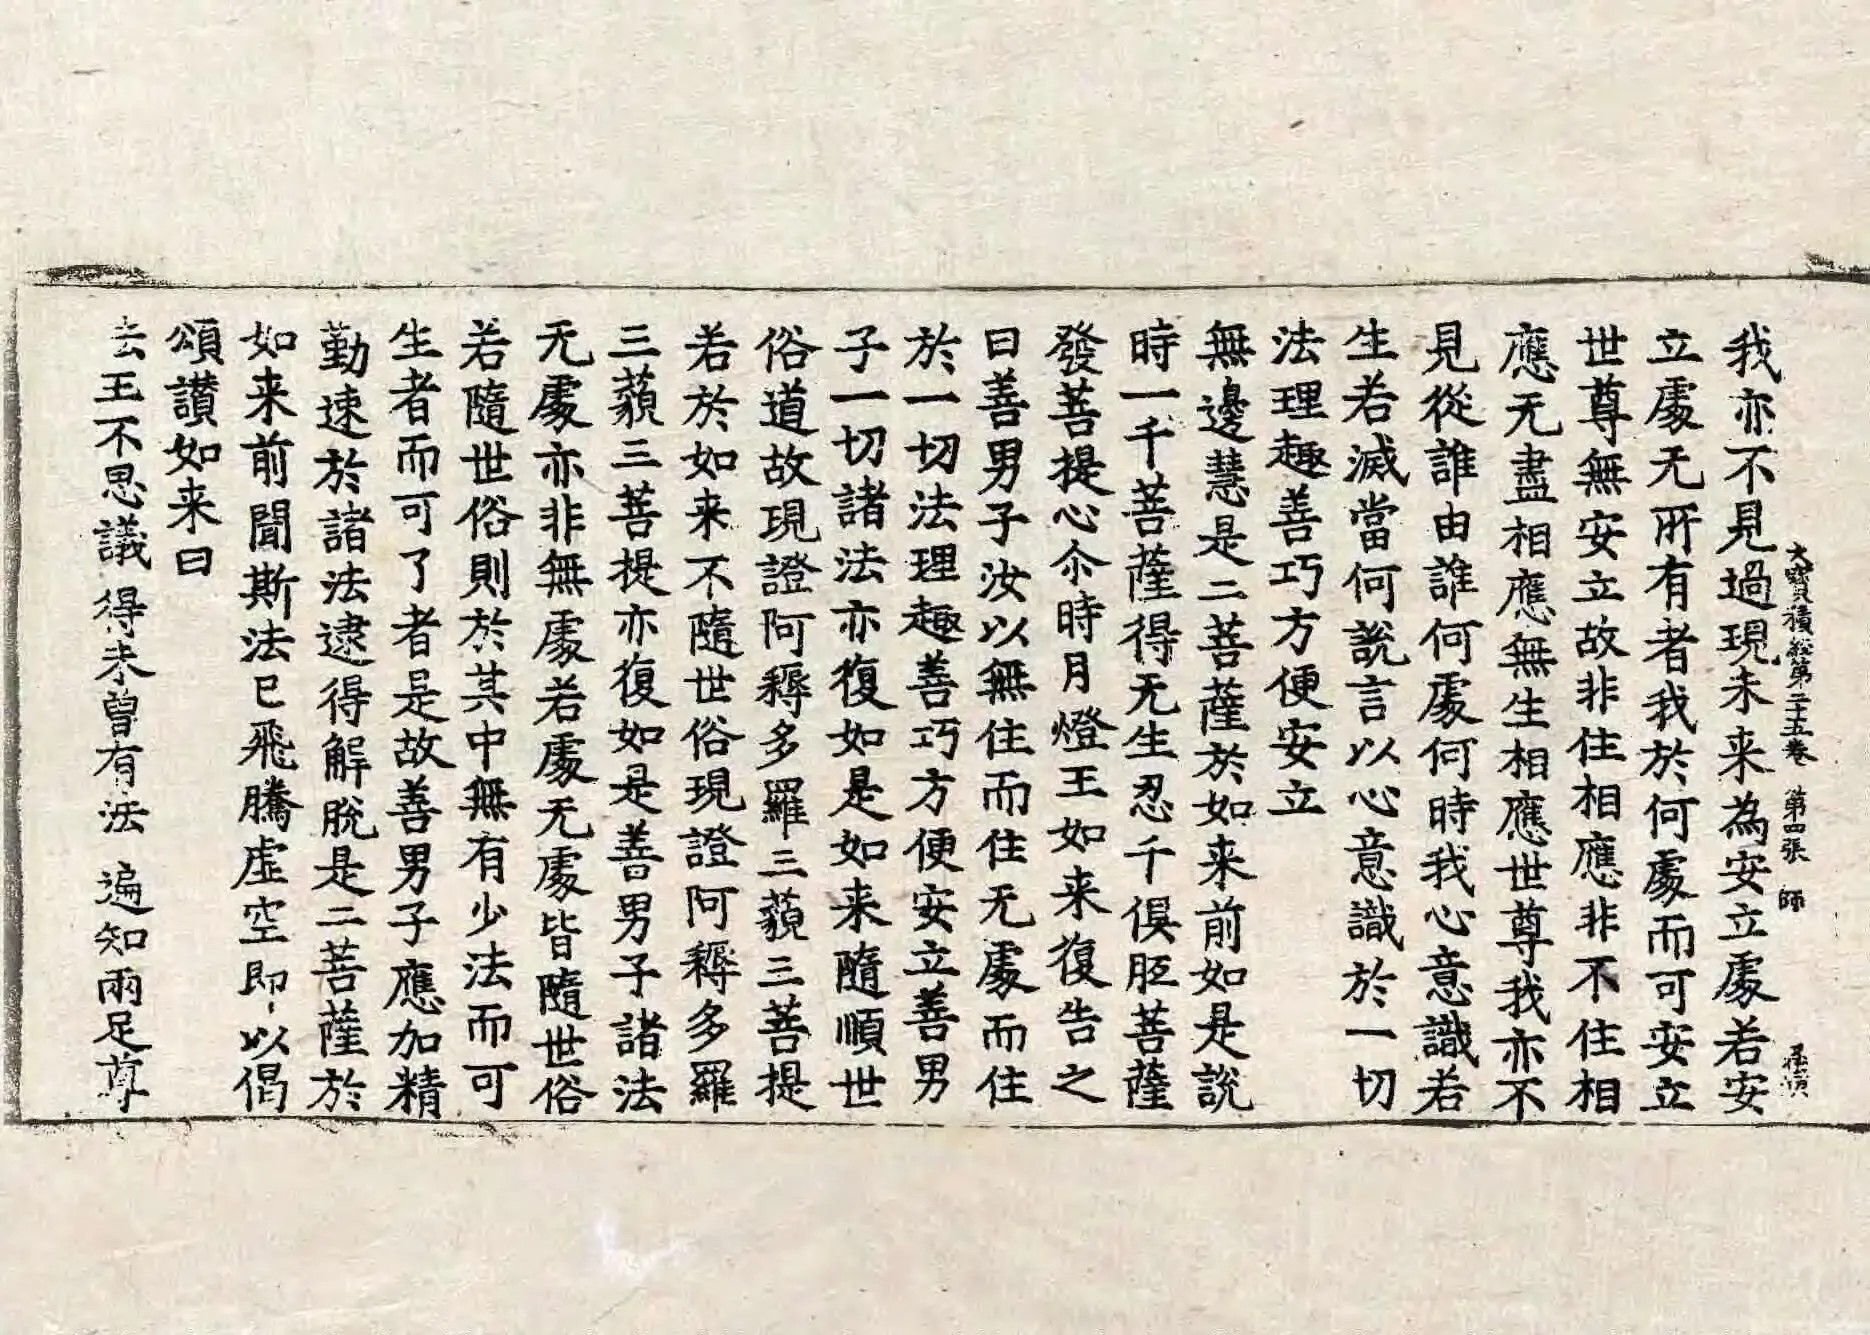 大寶積經第二十五卷 第四張 師
我亦不見過現未来為安立處若安
立處无所有者我於何處而可安立
世尊無安立故非住相應非不住相
應无盡相應無生相應世尊我亦不
見從誰由誰何處何時我心意識若
生若滅當何說言以心意識於一切
法理趣善巧方便安立
無邊慧是二菩薩於如来前如是說
時一千菩薩得无生忍千俱胝菩薩
發菩提心尒時月燈王如来復告之
曰善男子汝以無住而住无處而住
於一切法理趣善巧方便安立善男
子一切諸法亦復如是如来隨順世
俗道故現證阿耨多羅三藐三菩提
若於如来不隨世俗現證阿耨多羅
三藐三菩提亦復如是善男子諸法
无處亦非無處若處无處皆隨世俗
若隨世俗則於其中無有少法而可
生者而可了者是故善男子應加精
勤速於諸法逮得解脫是二菩薩於
如来前聞斯法已飛騰虛空即以偈
頌讃如来曰
去王不思議 得未曾有法 遍知兩足尊